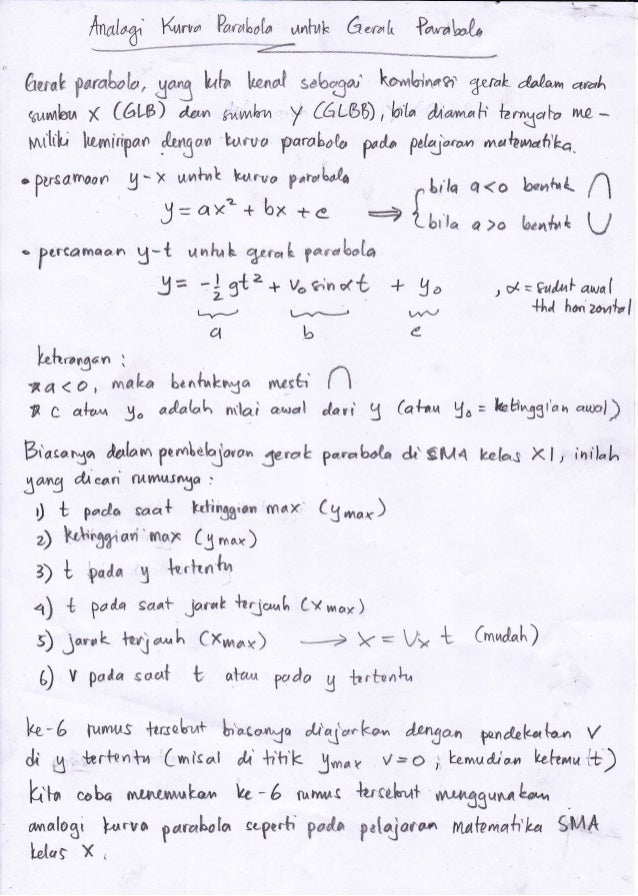 Analogi Kurva Parabola untuk Gerak Parabola
Gerak parabola, yang kita kenal sebagai kombinasi gerak dalam arah
sumbu X (GLB) dan sumbu Y (GLBB), bila diamati ternyata me-
miliki kemiripan dengan kurva parabola pada pelajaran matematika.
• persamaan y-x untuk kurva parabola
y = ax² + bx + c ⟹ { bila a<0 bentuk ∩
bila a>0 bentuk ∪
• persamaan y-t untuk gerak parabola
y = -½ gt² + v₀ sin α t + y₀ , α = sudut awal
thd horizontal
a b c
keterangan :
* a<0, maka bentuknya mesti ∩
* c atau y₀ adalah nilai awal dari y (atau y₀ = ketinggian awal)
Biasanya dalam pembelajaran gerak parabola di SMA kelas XI, inilah
yang dicari rumusnya :
1) t pada saat ketinggian max (ymax)
2) ketinggian max (ymax)
3) t pada y tertentu
4) t pada saat jarak terjauh (xmax)
5) jarak terjauh (xmax) → x = Vx t (mudah)
6) v pada saat t atau pada y tertentu
ke-6 rumus tersebut biasanya diajarkan dengan pendekatan V
di y tertentu (misal di titik ymax v=0 ; kemudian ketemu t)
Kita coba menemukan ke-6 rumus tersebut menggunakan
analogi kurva parabola seperti pada pelajaran matematika SMA
kelas X.